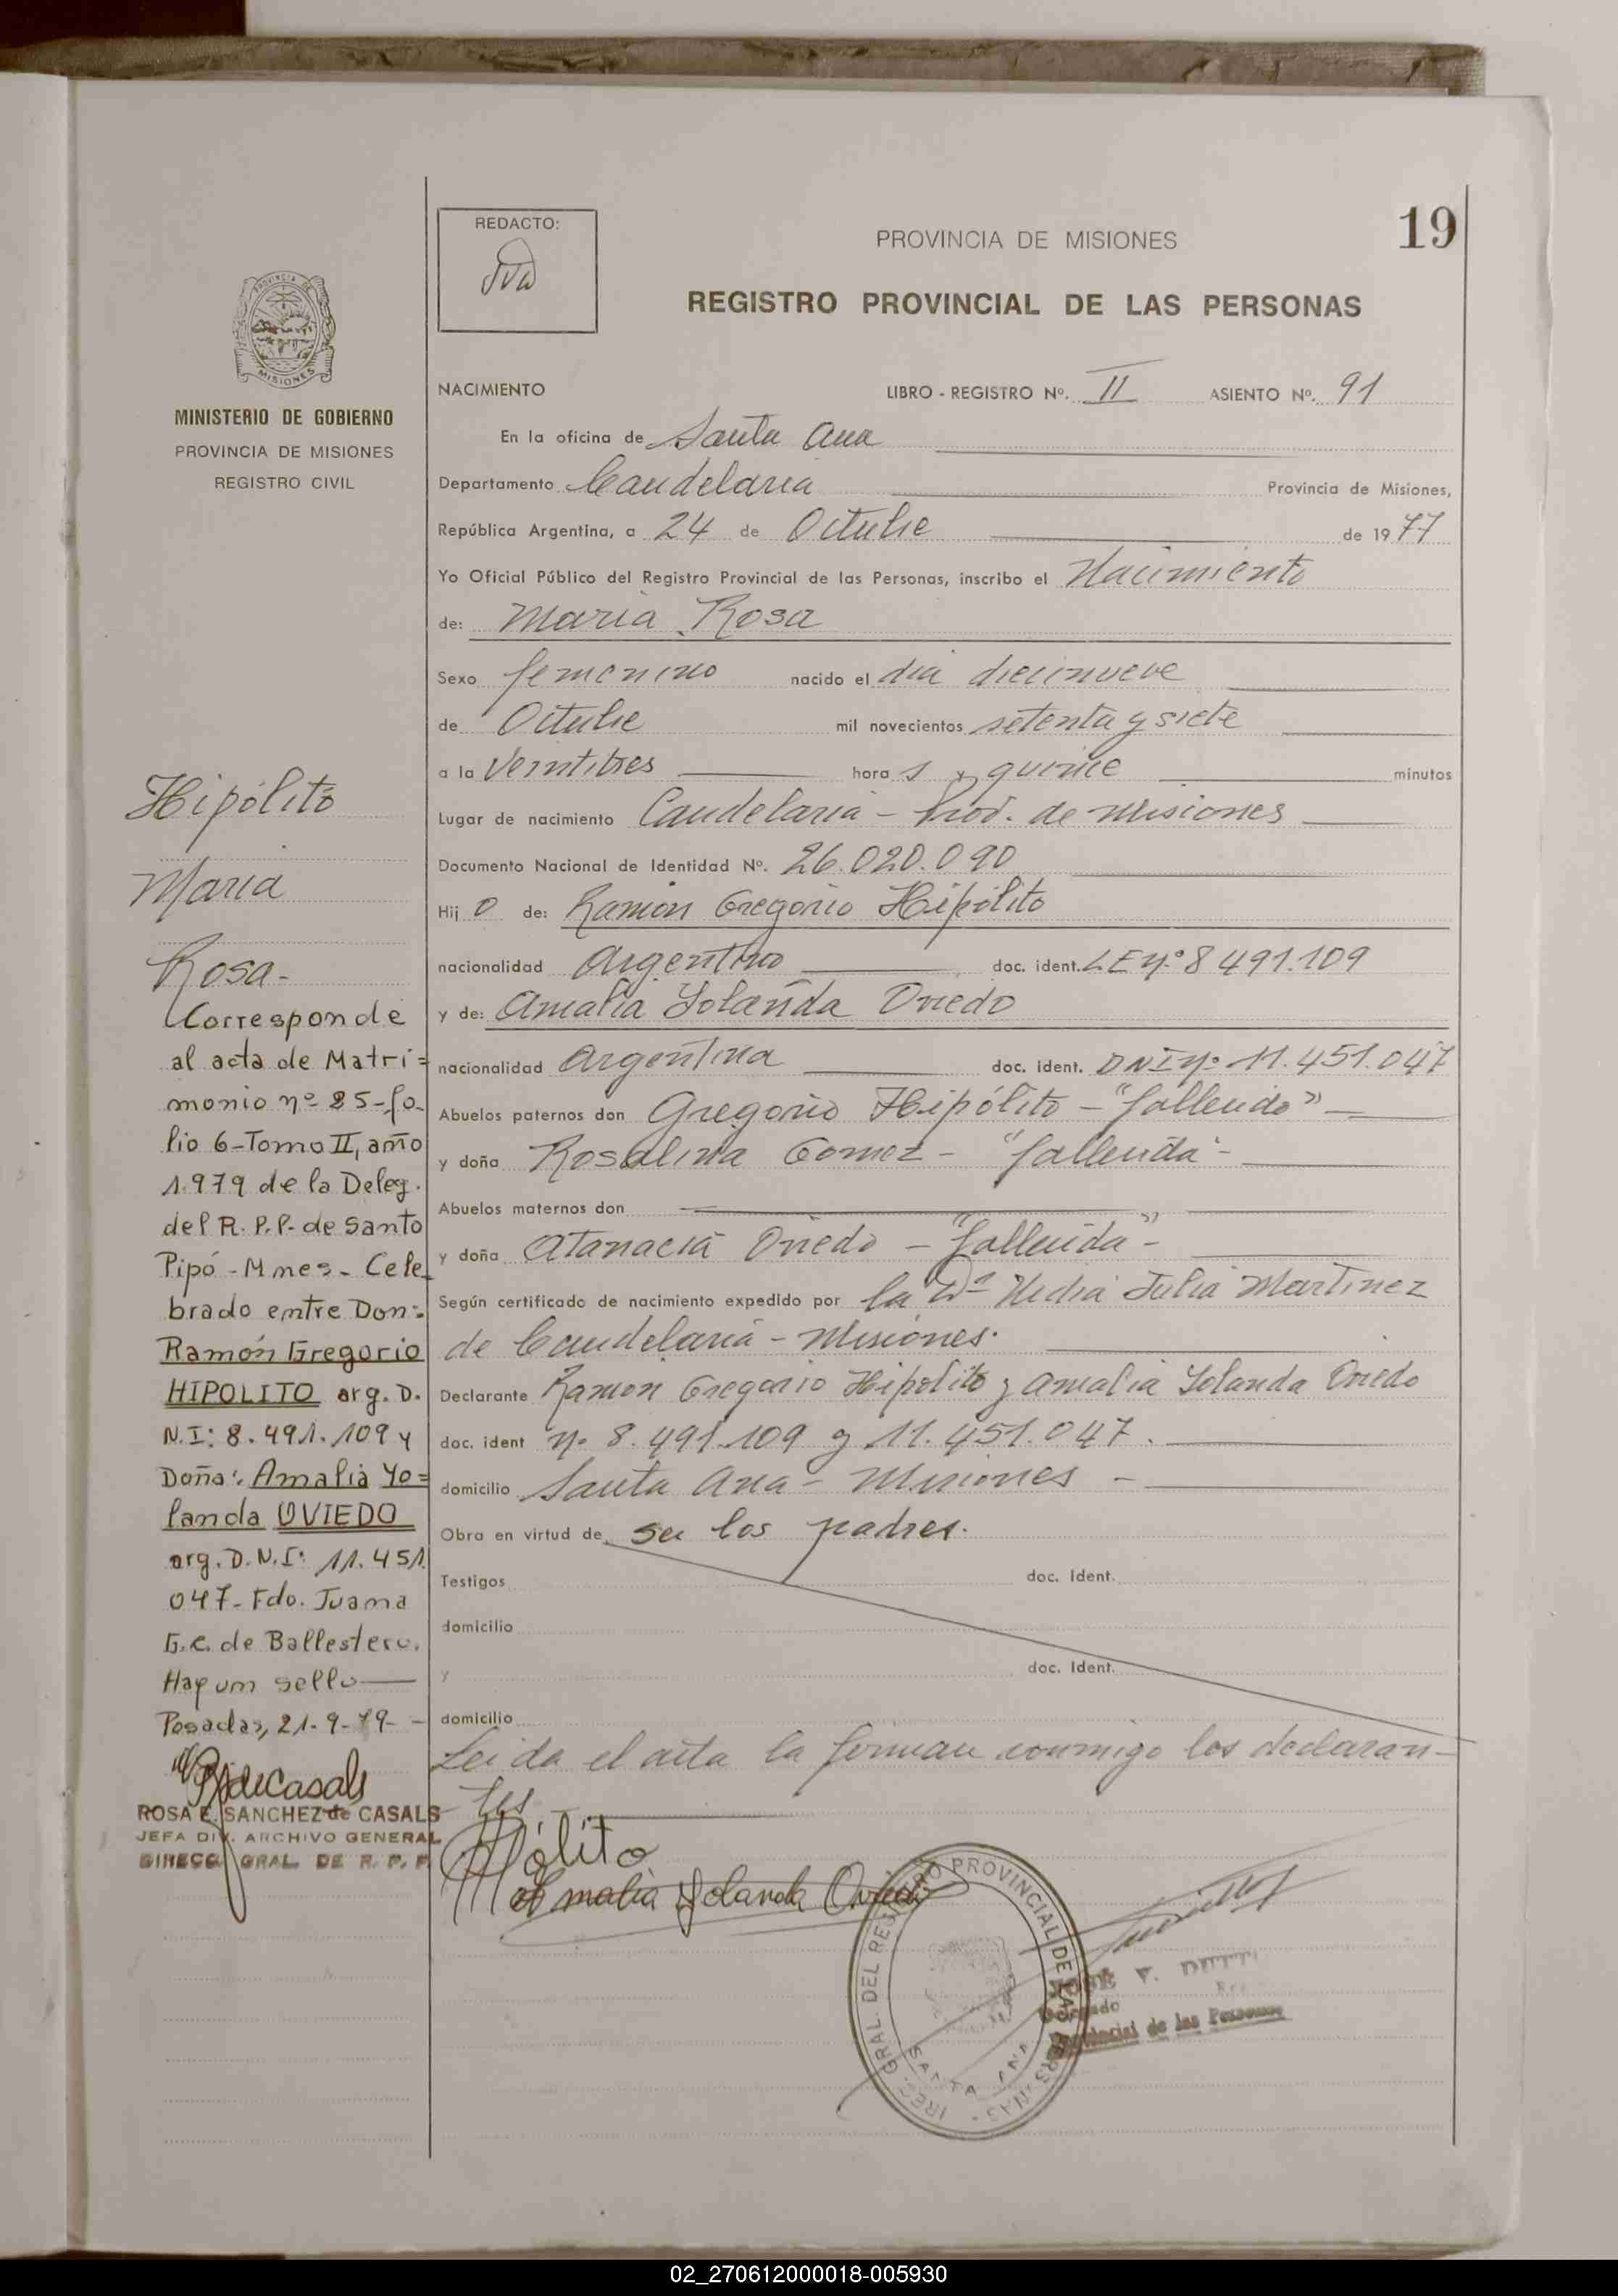 19
REDACTO:
PROVINCIA DE MISIONES
REGISTRO PROVINCIAL DE LAS PERSONAS
PROVINCIA DE
MISIONES
MINISTERIO DE GOBIERNO
PROVINCIA DE MISIONES
REGISTRO CIVIL
NACIMIENTO LIBRO - REGISTRO Nº. II ASIENTO Nº. 91
En la oficina de Santa Ana
Departamento Candelaria Provincia de Misiones,
República Argentina, a 24 de Octubre de 1977
Yo Oficial Público del Registro Provincial de las Personas, inscribo el Nacimiento
de: Maria Rosa
Sexo femenino nacido el dia diecinueve
de Octubre mil novecientos setenta y siete
a la Veintitres hora s y quince minutos
Lugar de nacimiento Candelaria - Prov. de Misiones
Documento Nacional de Identidad Nº. 26.020.090
Hij a de: Ramón Gregorio Hipólito
nacionalidad Argentino doc. ident. LE nº 8491.109
y de: Amalia Yolanda Oviedo
nacionalidad Argentina doc. ident. DNI nº 11.451.047
Abuelos paternos don Gregorio Hipólito - "fallecido" -
y doña Rosalina Gomez - "fallecida" -
Abuelos maternos don
y doña Atanacia Oviedo - "fallecida" -
Según certificado de nacimiento expedido por la Dª Julia Martinez
de Candelaria - Misiones.
Declarante Ramon Gregorio Hipolito y Amalia Yolanda Oviedo
doc. ident nº 8.491.109 y 11.451.047.
domicilio Santa Ana - Misiones -
Obra en virtud de ser los padres.
Testigos doc. ident.
domicilio
y doc. ident.
domicilio
Leida el acta la firman conmigo los declaran-
tes
Hipólito
Maria
Rosa-
Corresponde
al acta de Matri=
monio nº 25-fo-
lio 6-Tomo II, año
1.979 de la Deleg.
del R. P. P. de Santo
Pipó - Mnes - Cele
brado entre Don:
Ramón Gregorio
HIPOLITO arg. D.
N.I: 8.491.109 y
Doña: Amalia Yo=
landa OVIEDO
arg. D.N.I: 11.451.
047- Fdo. Juana
G.C. de Ballestero.
Hay un sello
Posadas, 21-9-79-
ROSA E. SANCHEZ de CASALS
JEFA DIV. ARCHIVO GENERAL
DIRECC. GRAL. DE R. P. P.
Amalia Yolanda Oviedo
DIREC. GRAL. DEL REGISTRO PROVINCIAL DE LAS PERSONAS
SANTA ANA
Delegado
Provincial de las Personas
02_270612000018-005930